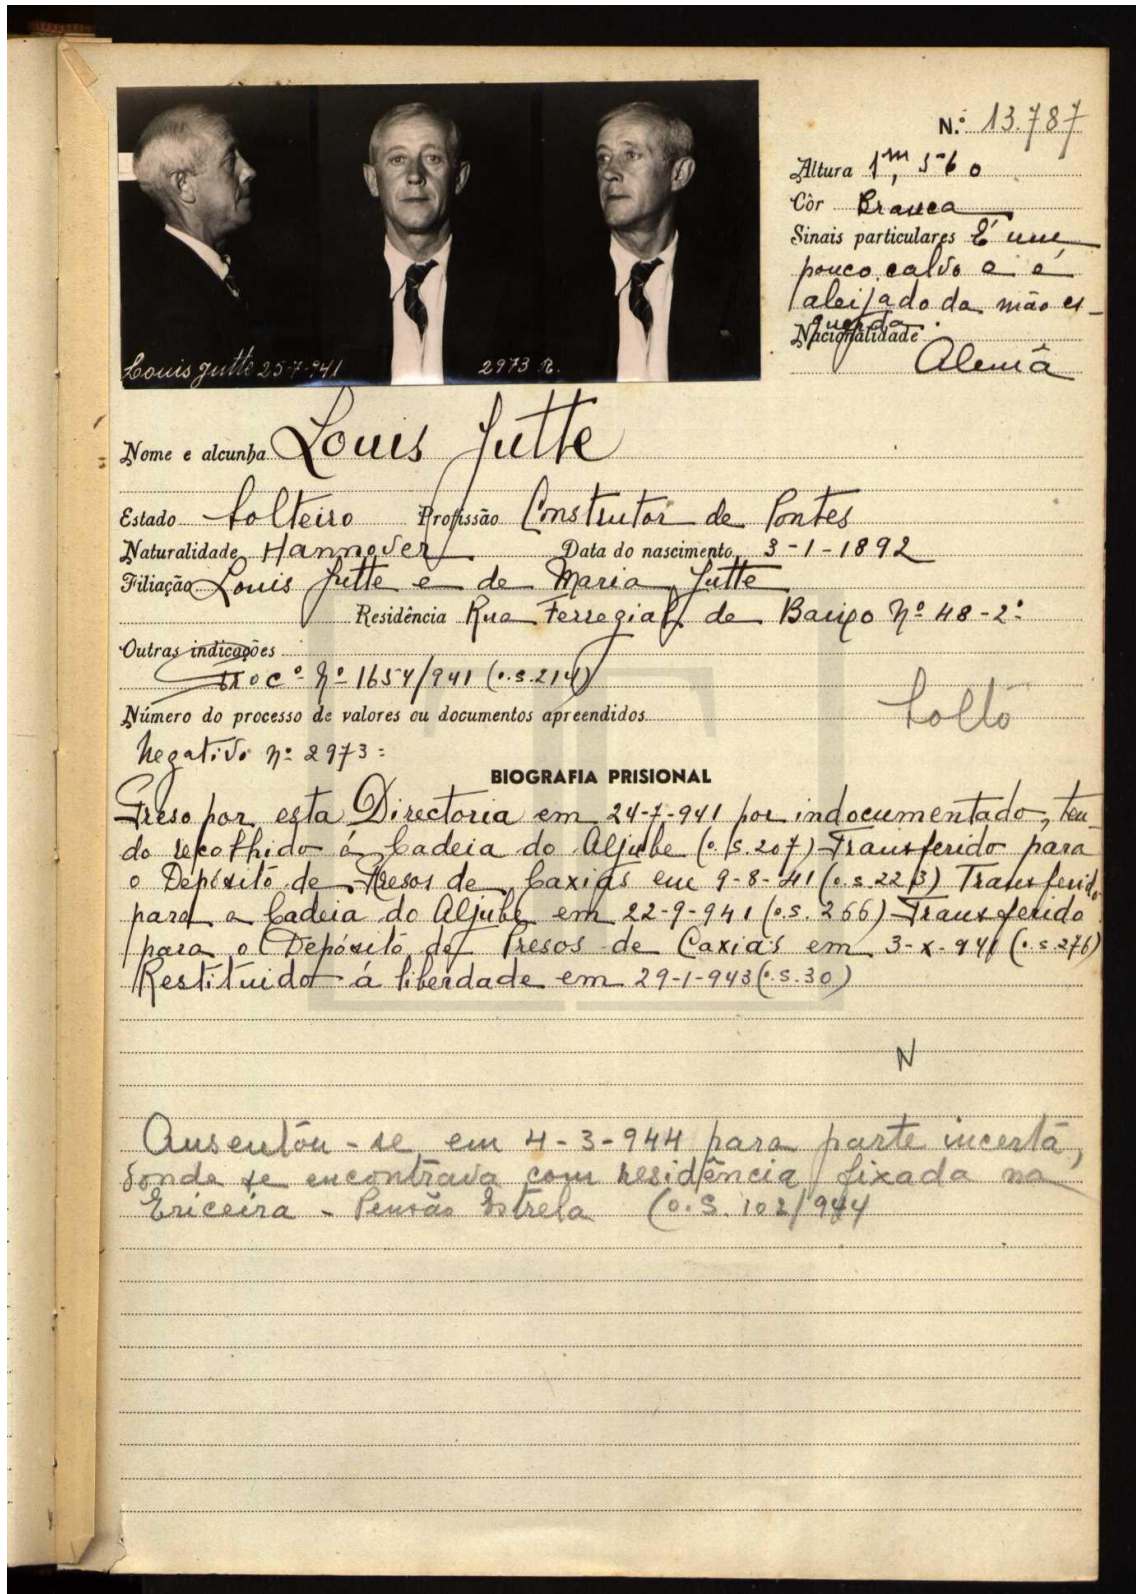 Louis Jutte 25-7-941 2973 R.
N.º 13.787
Altura 1m,560
Côr Branca
Sinais particulares É um
pouco calvo e é
aleijado da mão es-
querda.
Nacionalidade
Alemã
Nome e alcunha Louis Jutte
Estado Solteiro Profissão Construtor de Pontes
Naturalidade Hannover Data do nascimento 3-1-1892
Filiação Louis Jutte e de Maria Jutte
Residência Rua Ferregial de Baixo Nº 48-2º
Outras indicações
Procº Nº 1654/941 (o.s.214)
Número do processo de valores ou documentos apreendidos
Solto
Negativo nº 2973=
BIOGRAFIA PRISIONAL
Preso por esta Directoria em 24-7-941 por indocumentado, ten-
do recolhido á Cadeia do Aljube (o.s.207) Transferido para
o Depósito de Presos de Caxias em 9-8-41 (o.s.223) Transferido
para a Cadeia do Aljube em 22-9-941 (o.s. 266) Transferido
para o Depósito de Presos de Caxias em 3-X-941 (o.s.276)
Restituido á liberdade em 29-1-943 (o.s.30)
N
Ausentou-se em 4-3-944 para parte incerta,
donde se encontrava com residência fixada na
Ericeira - Pensão Estrela (o.S. 102/944